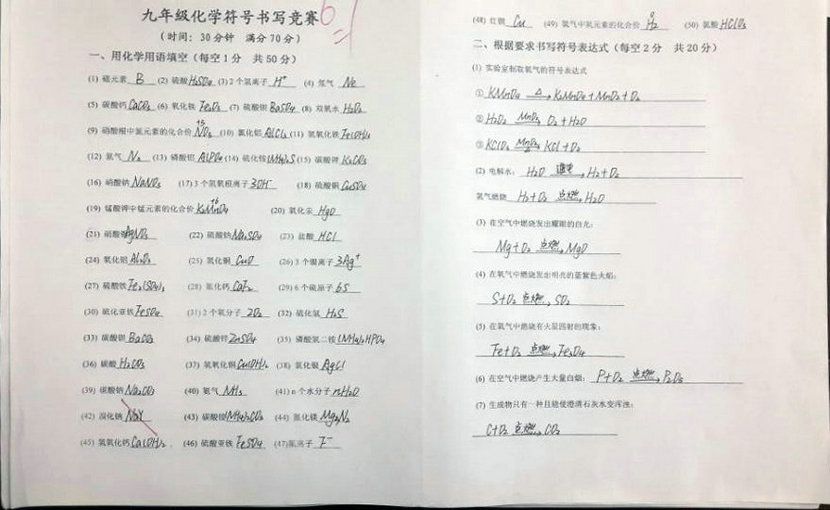 九年级化学符号书写竞赛
(时间: 30分钟 满分70分)
一、用化学用语填空 (每空1分 共50分)
(1) 硼元素 B (2) 硫酸 H₂SO₄ (3) 2个氢离子 H⁺ (4) 氖气 Ne
(5) 碳酸钙 CaCO₃ (6) 氧化铁 Fe₂O₃ (7) 硫酸钡 BaSO₄ (8) 双氧水 H₂O₂
(9) 硝酸根中氮元素的化合价 +5 NO₃ (10) 氯化铝 AlCl₃ (11) 氢氧化铁 Fe(OH)₃
(12) 氮气 N₂ (13) 磷酸铝 AlPO₄ (14) 硫化铵 (NH₄)₂S (15) 碳酸钾 K₂CO₃
(16) 硝酸钠 NaNO₃ (17) 3个氢氧根离子 3OH⁻ (18) 硫酸铜 CuSO₄
(19) 锰酸钾中锰元素的化合价 +6 K₂MnO₄ (20) 氧化汞 HgO
(21) 硝酸银 AgNO₃ (22) 硫酸钠 Na₂SO₄ (23) 盐酸 HCl
(24) 氧化铝 Al₂O₃ (25) 氧化铜 CuO (26) 3个银离子 3Ag⁺
(27) 硫酸铁 Fe₂(SO₄)₃ (28) 氟化钙 CaF₂ (29) 6个硫原子 6S
(30) 硫化亚铁 FeSO₄ (31) 2个氧分子 2O₂ (32) 硫化氢 H₂S
(33) 碳酸钡 BaCO₃ (34) 硫酸锌 ZnSO₄ (35) 磷酸氢二铵 (NH₄)₂HPO₄
(36) 碳酸 H₂CO₃ (37) 氢氧化铜 Cu(OH)₂ (38) 氯化银 AgCl
(39) 碳酸钠 Na₂CO₃ (40) 氨气 NH₃ (41) n个水分子 nH₂O
(42) 溴化钠 (43) 碳酸铵 (NH₄)₂CO₃ (44) 氮化镁 Mg₃N₂
(45) 氢氧化钙 Ca(OH)₂ (46) 硫酸亚铁 FeSO₄ (47) 氟离子 F⁻
(48) 红铜 Cu (49) 氢气中氢元素的化合价 0 H₂ (50) 氯酸 HClO₃
二、根据要求书写符号表达式 (每空2分 共20分)
(1) 实验室制取氧气的符号表达式
① KMnO₄ △→ K₂MnO₄+MnO₂+O₂
② H₂O₂ MnO₂→ O₂+H₂O
③ KClO₃ MnO₂→ KCl+O₂
(2) 电解水: H₂O 通电→ H₂+O₂
氢气燃烧 H₂+O₂ 点燃→ H₂O
(3) 在空气中燃烧发出耀眼的白光:
Mg+O₂ 点燃→ MgO
(4) 在氧气中燃烧发出明亮的蓝紫色火焰:
S+O₂ 点燃→ SO₂
(5) 在氧气中燃烧有火星四射的现象:
Fe+O₂ 点燃→ Fe₃O₄
(6) 在空气中燃烧产生大量白烟: P+O₂ 点燃→ P₂O₅
(7) 生成物只有一种且能使澄清石灰水变浑浊:
C+O₂ 点燃→ CO₂